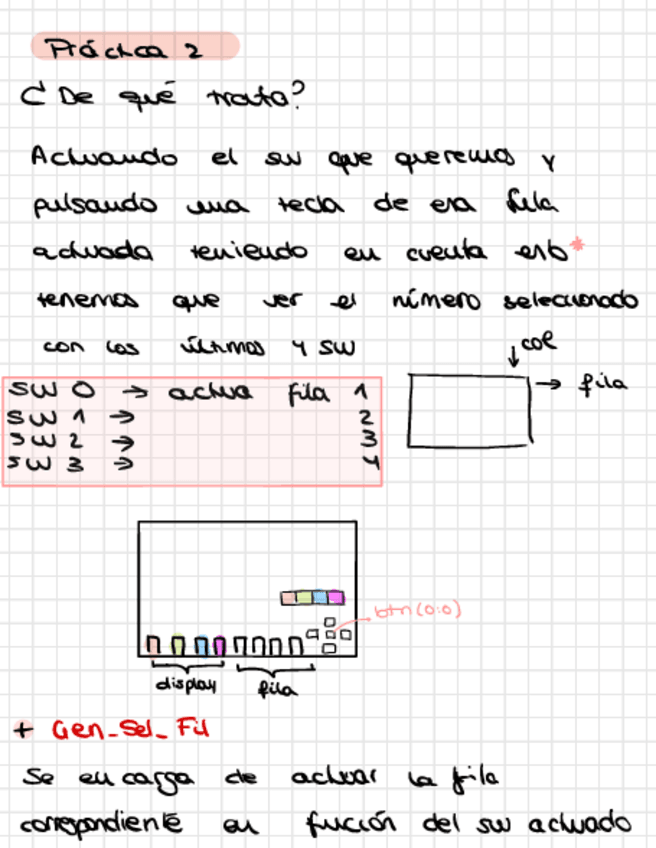 Práctica 2
¿De qué trata?
Activando el sw que queremos y
pulsando una tecla de esa fila
activada teniendo en cuenta esto*
tenemos que ver el número seleccionado
con los últimos 4 sw
↓ col
SW 0 → activa fila 1
→ fila
SW 1 → 2
SW 2 → 3
SW 3 → 4
btn(0:0)
display fila
+ Gen_Sel_Fil
Se encarga de activar la fila
correspondiente en fucción del sw activado